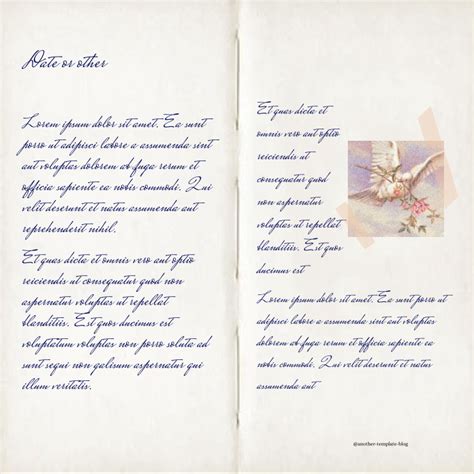 Date or other
Lorem ipsum dolor sit amet. Ea sunt
porro ut adipisci labore a assumenda sint
aut voluptas dolorem ab fuga rerum et
officia sapiente ea nobis commodi. Qui
velit deserunt et natus assumenda aut
reprehenderit nihil.
Et quas dicta et omnis vero aut optio
reiciendis ut consequatur quod non
aspernatur voluptas ut repellat
blanditiis. Est quos ducimus est
voluptatum voluptas non porro soluta ad
sunt sequi non galisum aspernatur qui
illum veritatis.
Et quas dicta et
omnis vero aut optio
reiciendis ut
consequatur quod
non aspernatur
voluptas ut repellat
blanditiis. Est quos
ducimus est
Lorem ipsum dolor sit amet. Ea sunt porro ut
adipisci labore a assumenda sint aut voluptas
dolorem ab fuga rerum et officia sapiente ea
nobis commodi. Qui velit deserunt et natus
assumenda aut
@another-template-blog